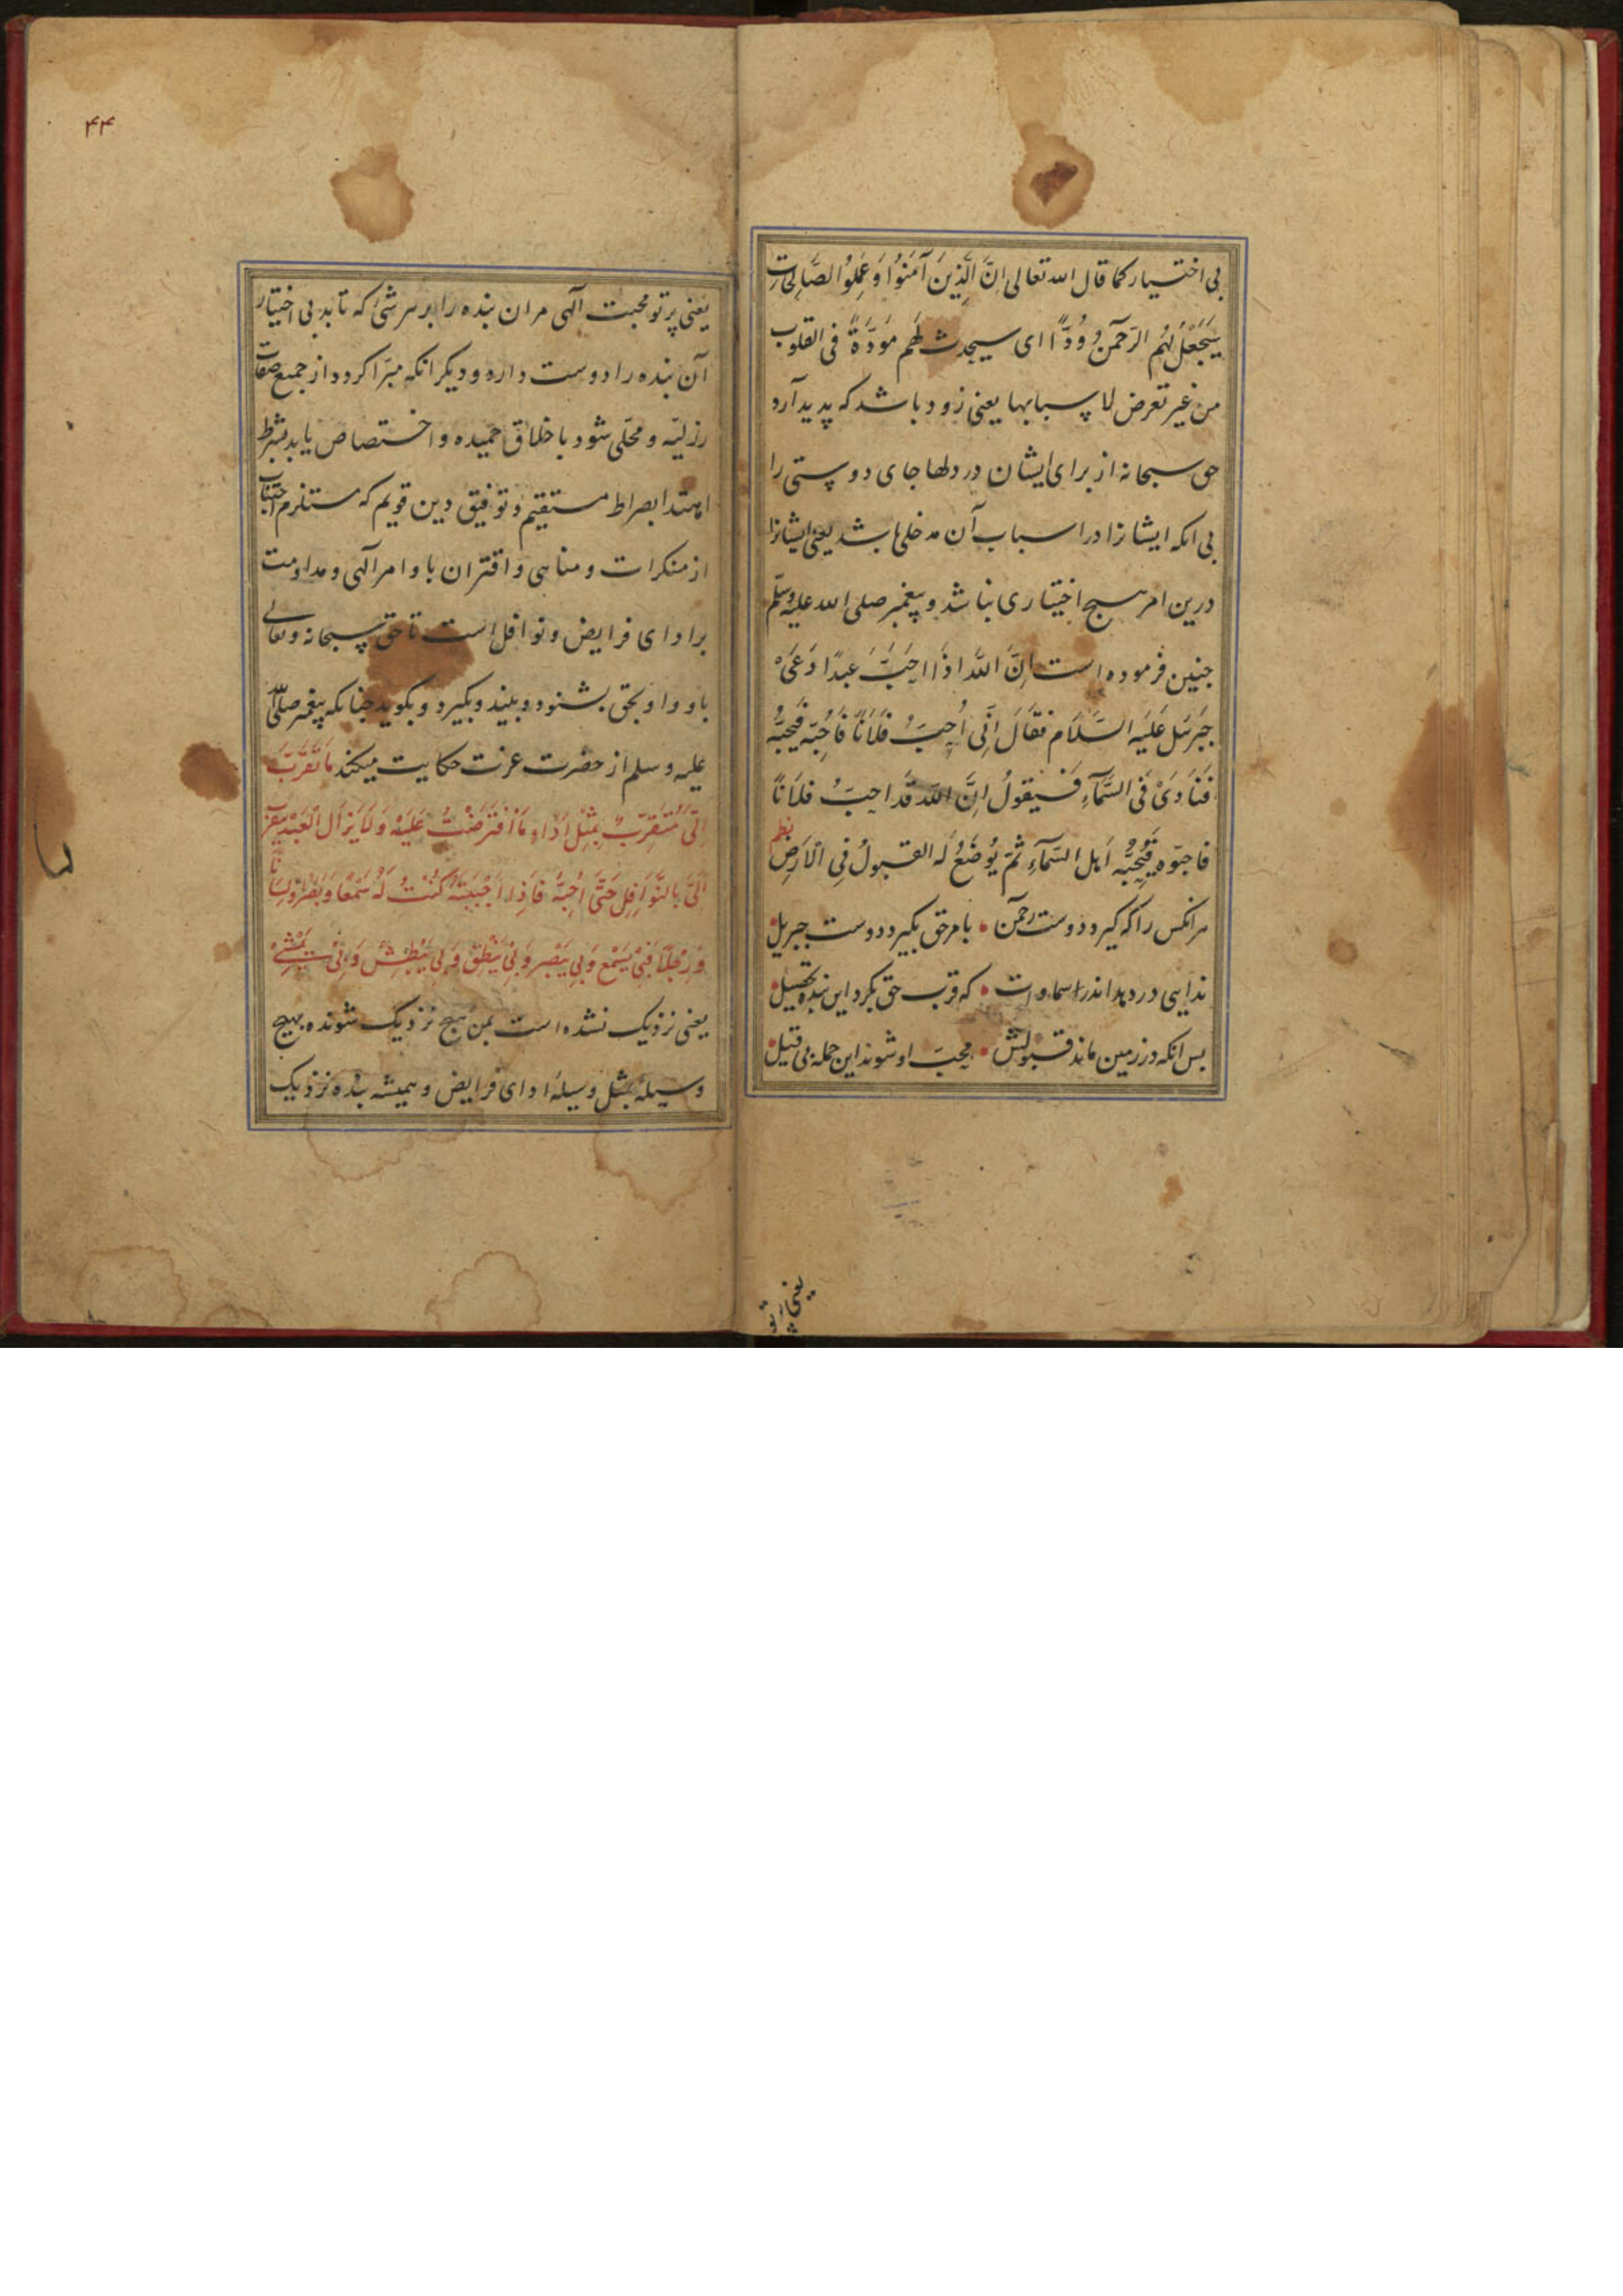 بی اختیار کما قال الله تعالی اِنَّ الَّذِینَ آمَنُوا وَعَمِلُوا الصَّالِحَاتِ
سَیَجْعَلُ لَهُم الرَّحْمٰنُ وُدًّا ای سیحدث لهم مَوَدَّةً فی القلوب
من غیر تعرض لاسبابها یعنی زود باشد که پدید آرد
حق سبحانه از برای ایشان در دلها جای دوستی را
بی انکه ایشانرا در اسباب آن مدخلی باشد یعنی ایشانرا
درین امر هیچ اختیاری نباشد و پیغمبر صلی الله علیه وسلم
چنین فرموده است اِنَّ اللّٰهَ اِذَا اَحَبَّ عَبدًا دَعَیٰ
جَبرَئیل عَلَیهِ السَّلَام فقَالَ اِنِّی اُحِبُّ فُلَانًا فَاَحِبّه فَیُحِبُّه
فَنَادَیٰ فِی السَّمَآءِ فَیَقولُ اِنَّ اللّٰهَ قَد احبَّ فلَانًا
فاحبّوه فَیُحِبُّه اَهل السَّمَآءِ ثُمَّ یُوضَعُ لَه القبولُ فِی الاَرضِ
نظم
هر انکس را که گیرد دوست رحمن • بامر حق بگیرد دوست جبریل
ندایی در دهد اندر سماوات • که قرب حق بکرد این بنده تحصیل
پس انکه در زمین ماند قبولش • محبّ او شوند این جمله بی قیل
یعنی پرتو
۴۴
یعنی پرتو محبت الهی مر ان بنده را بر هر شیٔ که تابد بی اختیار
آن بنده را دوست دارد و دیگر انکه مبرّا گردد از جمیع صفات
رذلیّه و محلّی شود باخلاق حمیده و اختصاص یابد بشرط
اهتدا بصراط مستقیم و توفیق دین قویم که مستلزم اجتناب
از منکرات و مناهی و اقتران باوامر الهی و مداومت
بر ادای فرایض و نوافل است تا حق سبحانه وتعالی
باو و او بحق بشنود و بیند و بگیرد و بگوید چنانکه پیغمبر صلی الله
علیه وسلم از حضرت عزت حکایت میکند مَا تَقَرَّبَ
اِلَیَّ مُتَقَرِّبٌ بِمِثْلِ اَدَاءِ مَا افْتَرَضْتُ عَلَیْهِ وَلَا یَزَال الْعَبْد یتقرب
اِلَیَّ بِالنَّوَافِلِ حَتَّیٰ اُحِبَّهُ فَاِذَا اَحْبَبْتَهُ کُنْتُ لَهُ سَمْعًا وَبَصَرًا وَلِسَانًا
وَرِجْلًا فَبِیْ یَسْمَع وَبِی یَبْصِر وَبِیْ یَنْطِقُ وَبِی یَبْطِشُ وَبِیْ یَمْشِیْ
یعنی نزدیک نشده است بمن هیچ نزدیک شونده بهیچ
وسیلهٔ بمثل وسیلهٔ ادای فرایض و همیشه بنده نزدیک